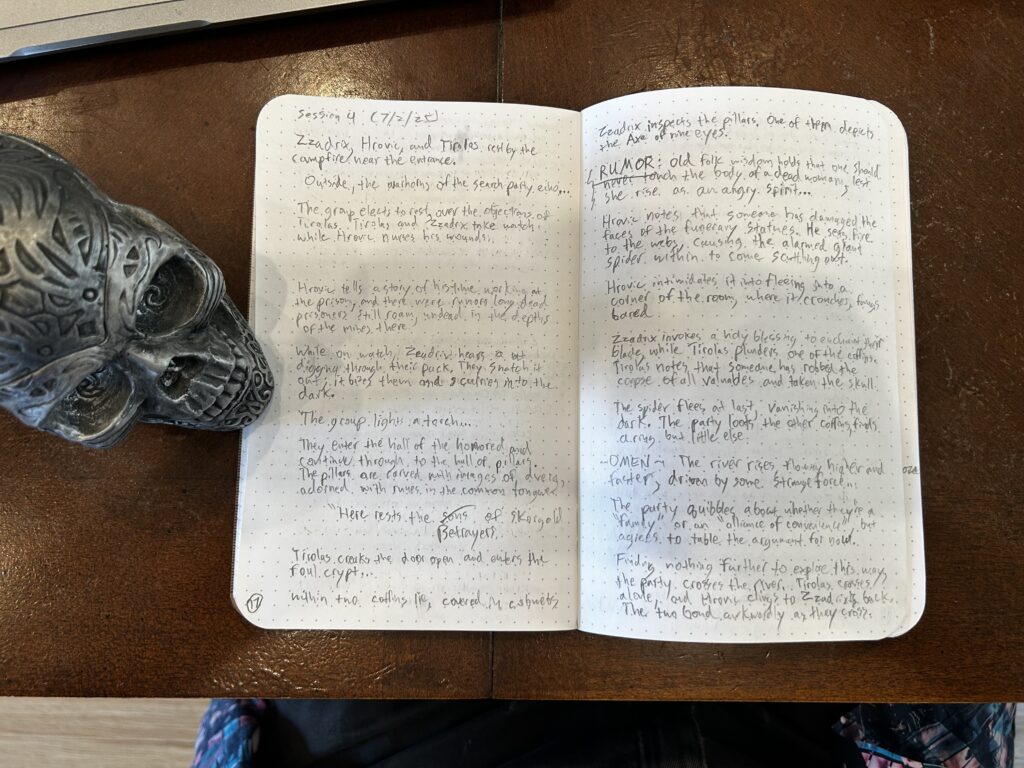 Session 4 (7/2/25)
Zzadrix, Hrovic, and Tirolas rest by the
campfire near the entrance.
Outside, the warhorns of the search party echo...
The group elects to rest, over the objections of
Tirolas. Tirolas and Zzadrix take watch
while Hrovic nurses his wounds.
Hrovic tells a story of his time working at
the prison, and there were rumors long dead
prisoners still roam, undead in the depths
of the mines there.
While on watch, Zzadrix hears a rat
digging through their pack. They snatch it
out; it bites them and scurries into the
dark.
The group lights a torch...
They enter the hall of the honored and
continue through to the hall of pillars.
The pillars are carved with images of
adorned with runes in the common tongue:
"Here rests the sons of Skorgald
Betrayers
Tirolas creaks the door open and enters the
foul crypt...
Within two coffins lie, covered in cobwebs
17
Zzadrix inspects the pillars. One of them depicts
the Axe of nine eyes.
RUMOR: Old folk wisdom holds that one should
never touch the body of a dead woman, lest
she rise as an angry spirit...
Hrovic notes that someone has damaged the
faces of the funerary statues. He sets fire
to the webs, causing the alarmed giant
spider within to come scuttling out.
Hrovic intimidates it into fleeing into a
corner of the room, where it crouches, fangs
bared.
Zzadrix invokes a holy blessing to enchant their
blade, while Tirolas plunders one of the coffins.
Tirolas notes that someone has robbed the
corpse of all valuables and taken the skull.
The spider flees at last, vanishing into the
dark. The party loots the other coffin, finds
a ring, but little else.
~OMEN~: The river rises, flowing higher and
faster, driven by some strange force...
The party quibbles about whether they're a
"family" or an "alliance of convenience", but
agrees to table the argument for now.
Finding nothing further to explore this way,
the party crosses the river. Tirolas crosses
alone, and Hrovic clings to Zzadrix's back.
The two bond awkwardly as they cross.